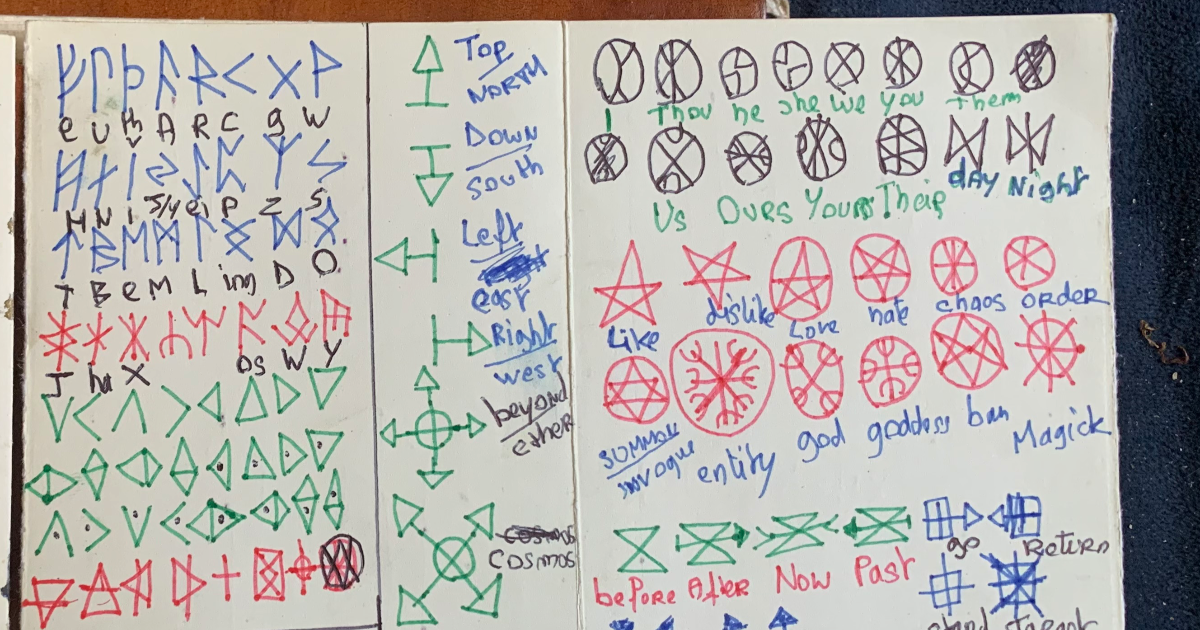 ᚠ ᚢ ᚦ ᚨ ᚱ ᚲ ᚷ ᚹ
e u th A R C g W
ᚺ ᚾ ᛁ ᛃ ᛇ ᛈ ᛉ ᛊ
H N i J/y ei P Z S
ᛏ ᛒ ᛖ ᛗ ᛚ ᛜ ᛞ ᛟ
T B e M L ing D O
os W y
J X
Top
NORTH
Down
South
Left
east
Right
west
beyond
ether
cosmos
I Thou he she we you Them
day Night
Us Ours Yours Their
Like dislike Love hate chaos ORDER
SUMMON
invoque
entity god goddess ban Magick
before After Now Past
go Return